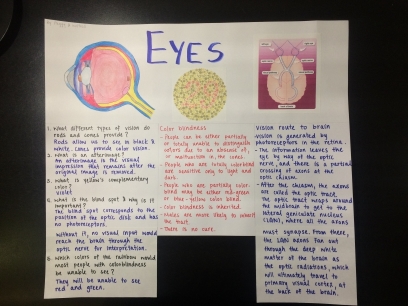 EYES
1. What different types of vision do
rods and cones provide?
Rods allow us to see in black &
white. Cones provide color vision.
2. What is an afterimage?
An afterimage is the visual
impression that remains after the
original image is removed.
3. What is yellow's complementary
color?
Violet
4. What is the blind spot & why is it
important?
The blind spot corresponds to the
position of the optic disk and has
no photoreceptors.
Without it, no visual input would
reach the brain through the
optic nerve for interpretation.
5. Which colors of the rainbow would
most people with colorblindness
be unable to see?
They will be unable to see
red and green.
Color blindness
- People can be either partially
or totally unable to distinguish
colors due to an absence of,
or malfunction in, the cones.
- People who are totally colorblind
are sensitive only to light and
dark.
- People who are partially color-
blind may be either red-green
or blue-yellow color blind.
- Color blindness is inherited.
- Males are more likely to inherit
the trait.
- There is no cure.
Vision route to brain
- Vision is generated by
photoreceptors in the retina.
- The information leaves the
eye by way of the optic
nerve, and there is a partial
crossing of axons at the
optic chiasm.
- After the chiasm, the axons
are called the optic tract.
The optic tract wraps around
the midbrain to get to the
lateral geniculate nucleus
(LGN), where all the axons
must synapse. From there,
the LGN axons fan out
through the deep white
matter of the brain as
the optic radiations, which
will ultimately travel to
primary visual cortex, at
the back of the brain.